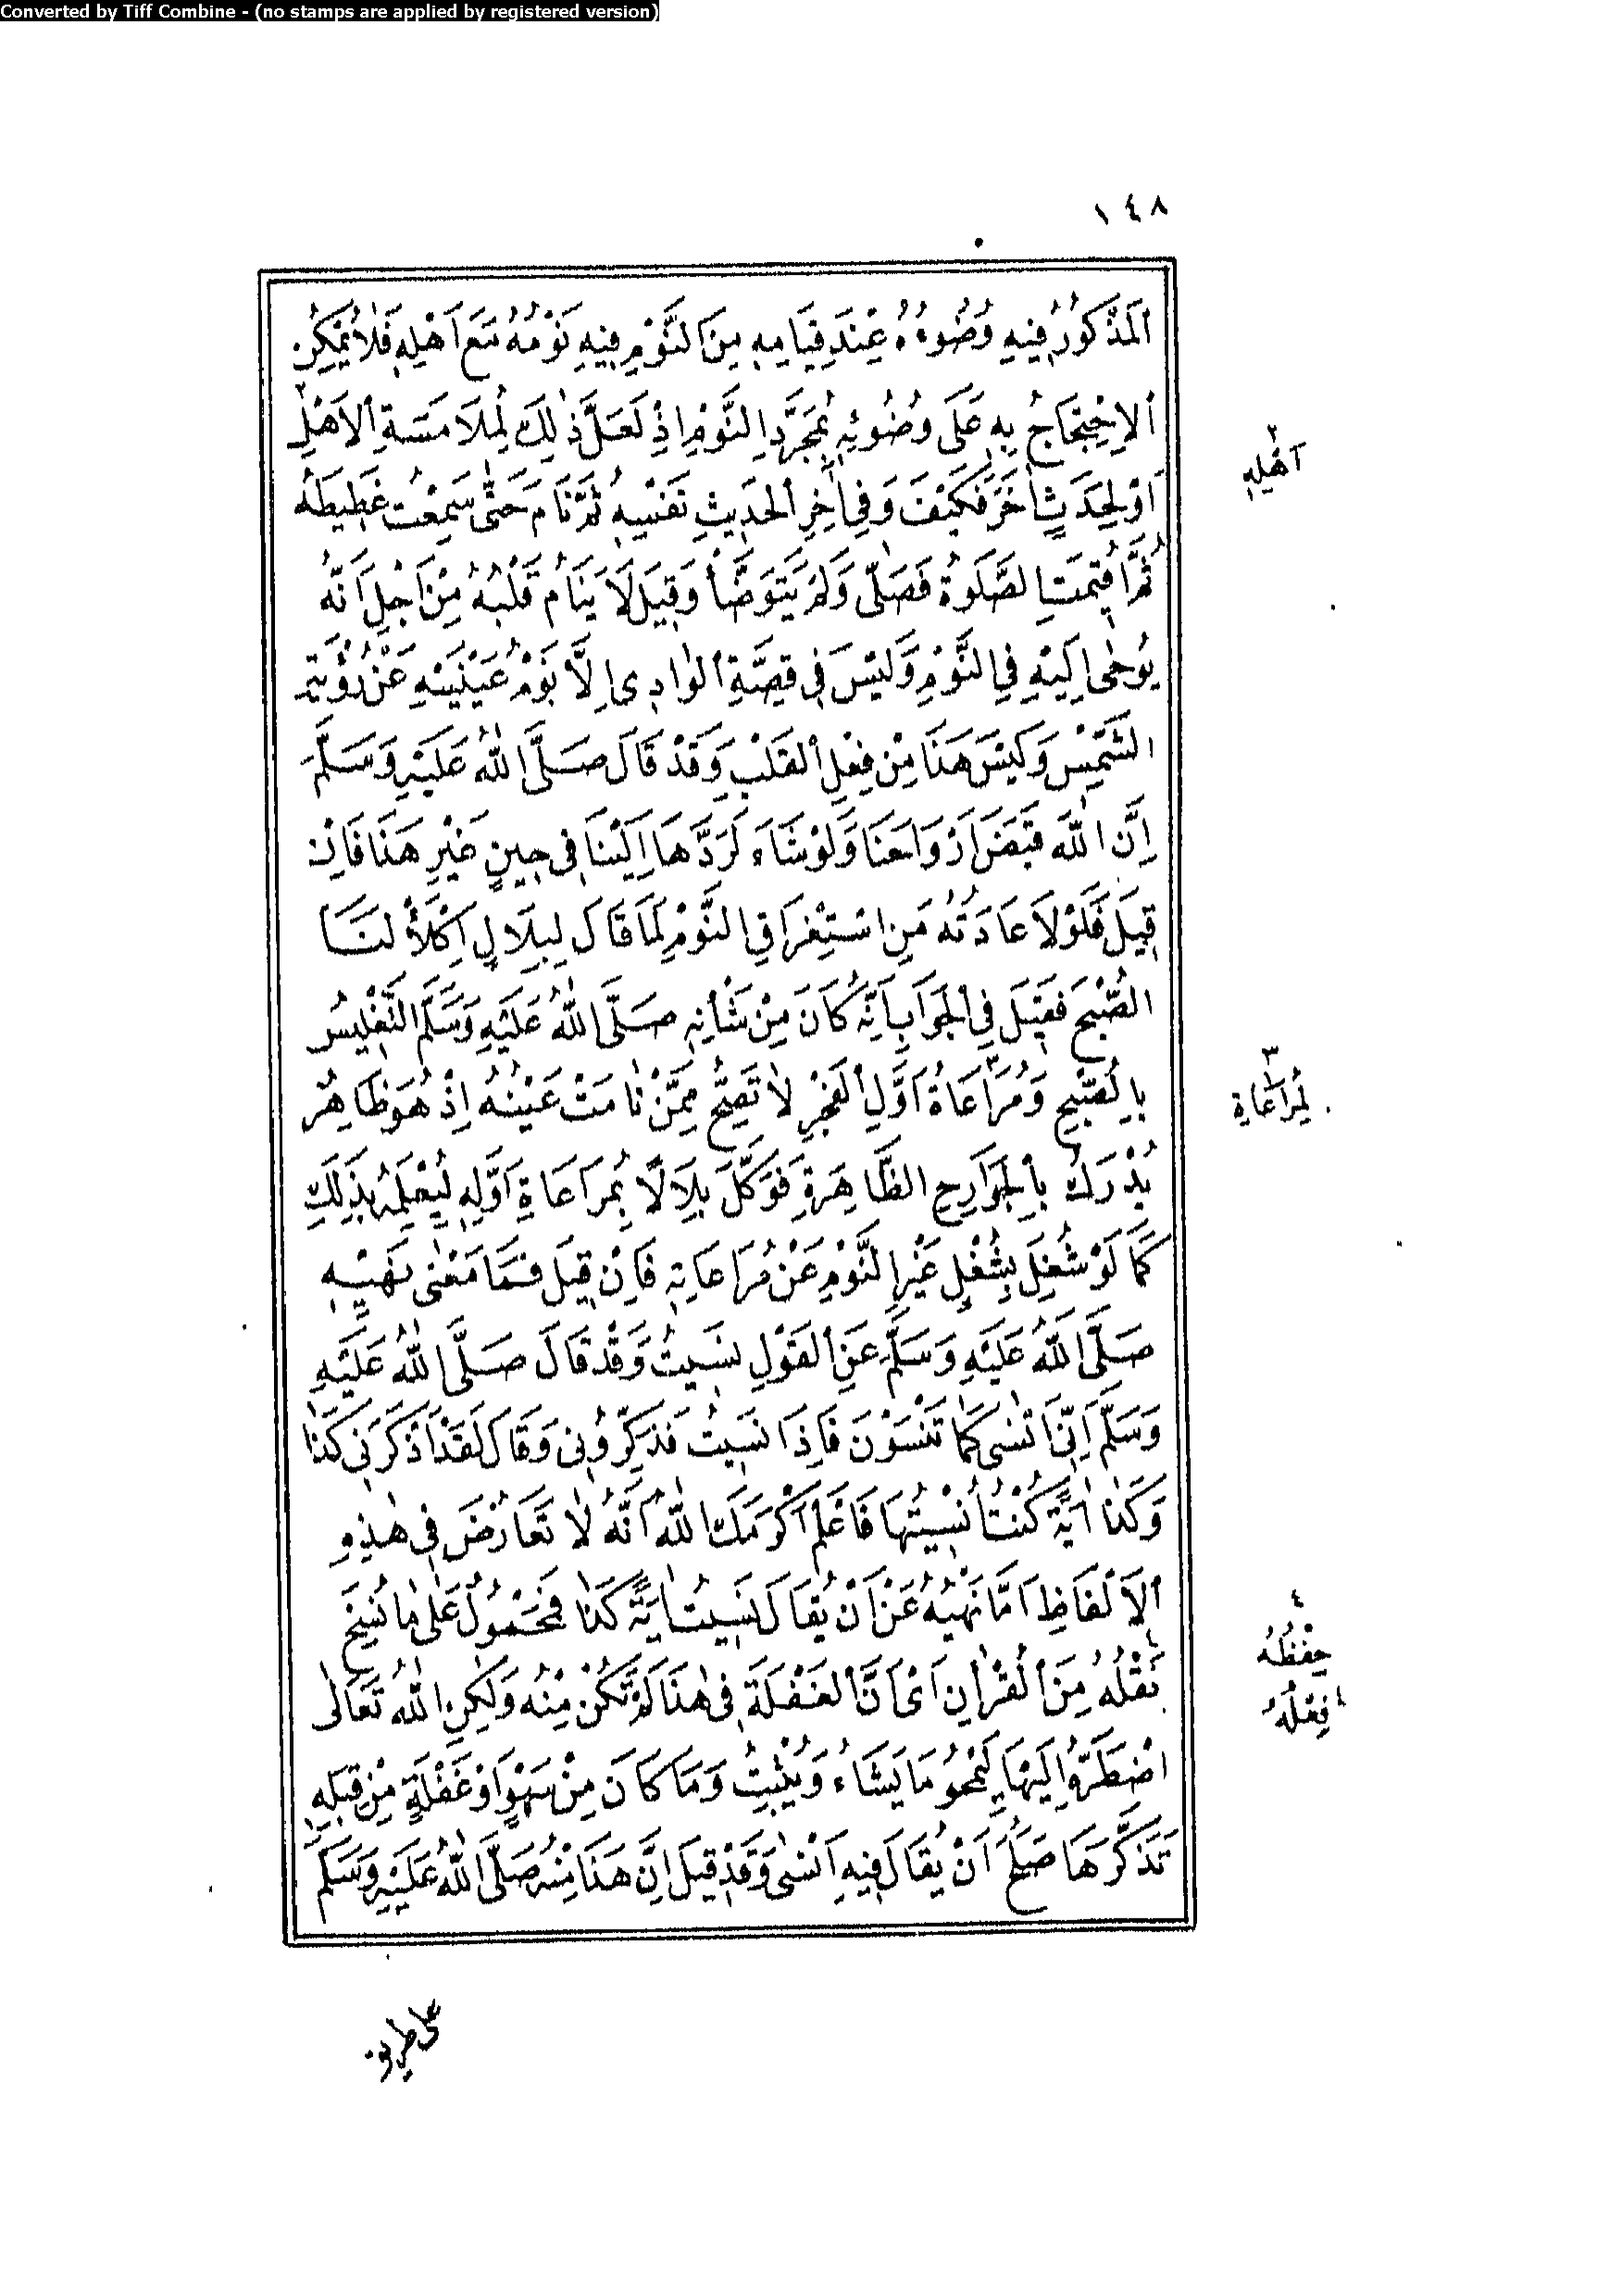 Converted by Tiff Combine - (no stamps are applied by registered version)
١٤٨
اَلْمَذْكُورُ فِيهِ وُضُوءُهُ عِنْدَ قِيَامِهِ مِنَ النَّوْمِ فِيهِ نَوْمُهُ مَعَ اَهْلِهِ فَلَا يُمْكِنُ
اَلاِحْتِجَاجُ بِهِ عَلَى وُضُوئِهِ بِمُجَرَّدِ النَّوْمِ اِذْ لَعَلَّ ذٰلِكَ لِمُلَامَسَةِ اْلاَهْلِ٢
اَوْ لِحَدَثٍ اٰخَرَ فَكَيْفَ وَفِى اٰخِرِ الْحَدِيثِ نَفْسِهِ ثُمَّ نَامَ حَتّٰى سَمِعْتُ غَطِيطَهُ
ثُمَّ اُقِيمَتِ الصَّلَوةُ فَصَلّٰى وَلَمْ يَتَوَضَّأْ وَقِيلَ لَا يَنَامُ قَلْبُهُ مِنْ اَجْلِ اَنَّهُ
يُوحٰى اِلَيْهِ فِى النَّوْمِ وَلَيْسَ فِى قِصَّةِ الْوَادِى اِلَّا نَوْمُ عَيْنَيْهِ عَنْ رُؤْيَةِ
الشَّمْسِ وَلَيْسَ هَذَا مِنْ فِعْلِ الْقَلْبِ وَقَدْ قَالَ صَلَّى اللّٰهُ عَلَيْهِ وَسَلَّمَ
اِنَّ اللّٰهَ قَبَضَ اَرْوَاحَنَا وَلَوْ شَاءَ لَرَدَّهَا اِلَيْنَا فِى حِينٍ غَيْرِ هَذَا فَاِنْ
قِيلَ فَلَوْلَا عَادَتُهُ مِنِ اسْتِغْرَاقِ النَّوْمِ لَمَا قَالَ لِبِلَالٍ اِكْلَأْ لَنَا
الصُّبْحَ فَقِيلَ فِى الْجَوَابِ اَنَّهُ كَانَ مِنْ شَأْنِهِ صَلَّى اللّٰهُ عَلَيْهِ وَسَلَّمَ التَّغْلِيسُ
بِالصُّبْحِ وَمُرَاعَاةُ٣ اَوَّلِ الْفَجْرِ لَا تَصِحُّ مِمَّنْ نَامَتْ عَيْنُهُ اِذْ هُوَ ظَاهِرٌ
يُدْرَكُ بِالْجَوَارِحِ الظَّاهِرَةِ فَوَكَّلَ بِلَالًا بِمُرَاعَاةِ اَوَّلِهِ لِيُعْلِمَهُ بِذَلِكَ
كَمَا لَوْ شُغِلَ بِشُغْلٍ غَيْرِ النَّوْمِ عَنْ مُرَاعَاتِهِ فَاِنْ قِيلَ فَمَا مَعْنٰى نَهْيِهِ
صَلَّى اللّٰهُ عَلَيْهِ وَسَلَّمَ عَنِ الْقَوْلِ نَسِيتُ وَقَدْ قَالَ صَلَّى اللّٰهُ عَلَيْهِ
وَسَلَّمَ اِنِّى اَنْسٰى كَمَا تَنْسَوْنَ فَاِذَا نَسِيتُ فَذَكِّرُونِى وَقَالَ لَقَدْ اَذْكَرَنِى كَذَا
وَكَذَا اٰيَةً كُنْتُ اُنْسِيتُهَا فَاعْلَمْ اَكْرَمَكَ اللّٰهُ اَنَّهُ لَا تَعَارُضَ فِى هٰذِهِ
اْلاَلْفَاظِ اَمَّا نَهْيُهُ عَنْ اَنْ يُقَالَ نَسِيتُ اٰيَةَ كَذَا فَمَحْمُولٌ عَلٰى مَا نُسِخَ
نَقْلُهُ٤ مِنَ الْقُرْاٰنِ اَىْ اَنَّ الْغَفْلَةَ فِى هٰذَا لَمْ تَكُنْ مِنْهُ وَلٰكِنِ اللّٰهُ تَعَالٰى
اضْطَرَّهُ اِلَيْهَا لِيَمْحُوَ مَا يَشَاءُ وَيُثْبِتُ وَمَا كَانَ مِنْ سَهْوٍ اَوْ غَفْلَةٍ مِنْ قِبَلِهِ
تَذَكَّرَهَا صَلُحَ اَنْ يُقَالَ فِيهِ اَنْسٰى وَقَدْ قِيلَ اِنَّ هَذَا مِنْهُ صَلَّى اللّٰهُ عَلَيْهِ وَسَلَّمَ
٢
اَهْلِهِ
٣
لِمُرَاعَاةِ
٤
حِفْظُهُ
٤ فِعْلُهُ
على طريق